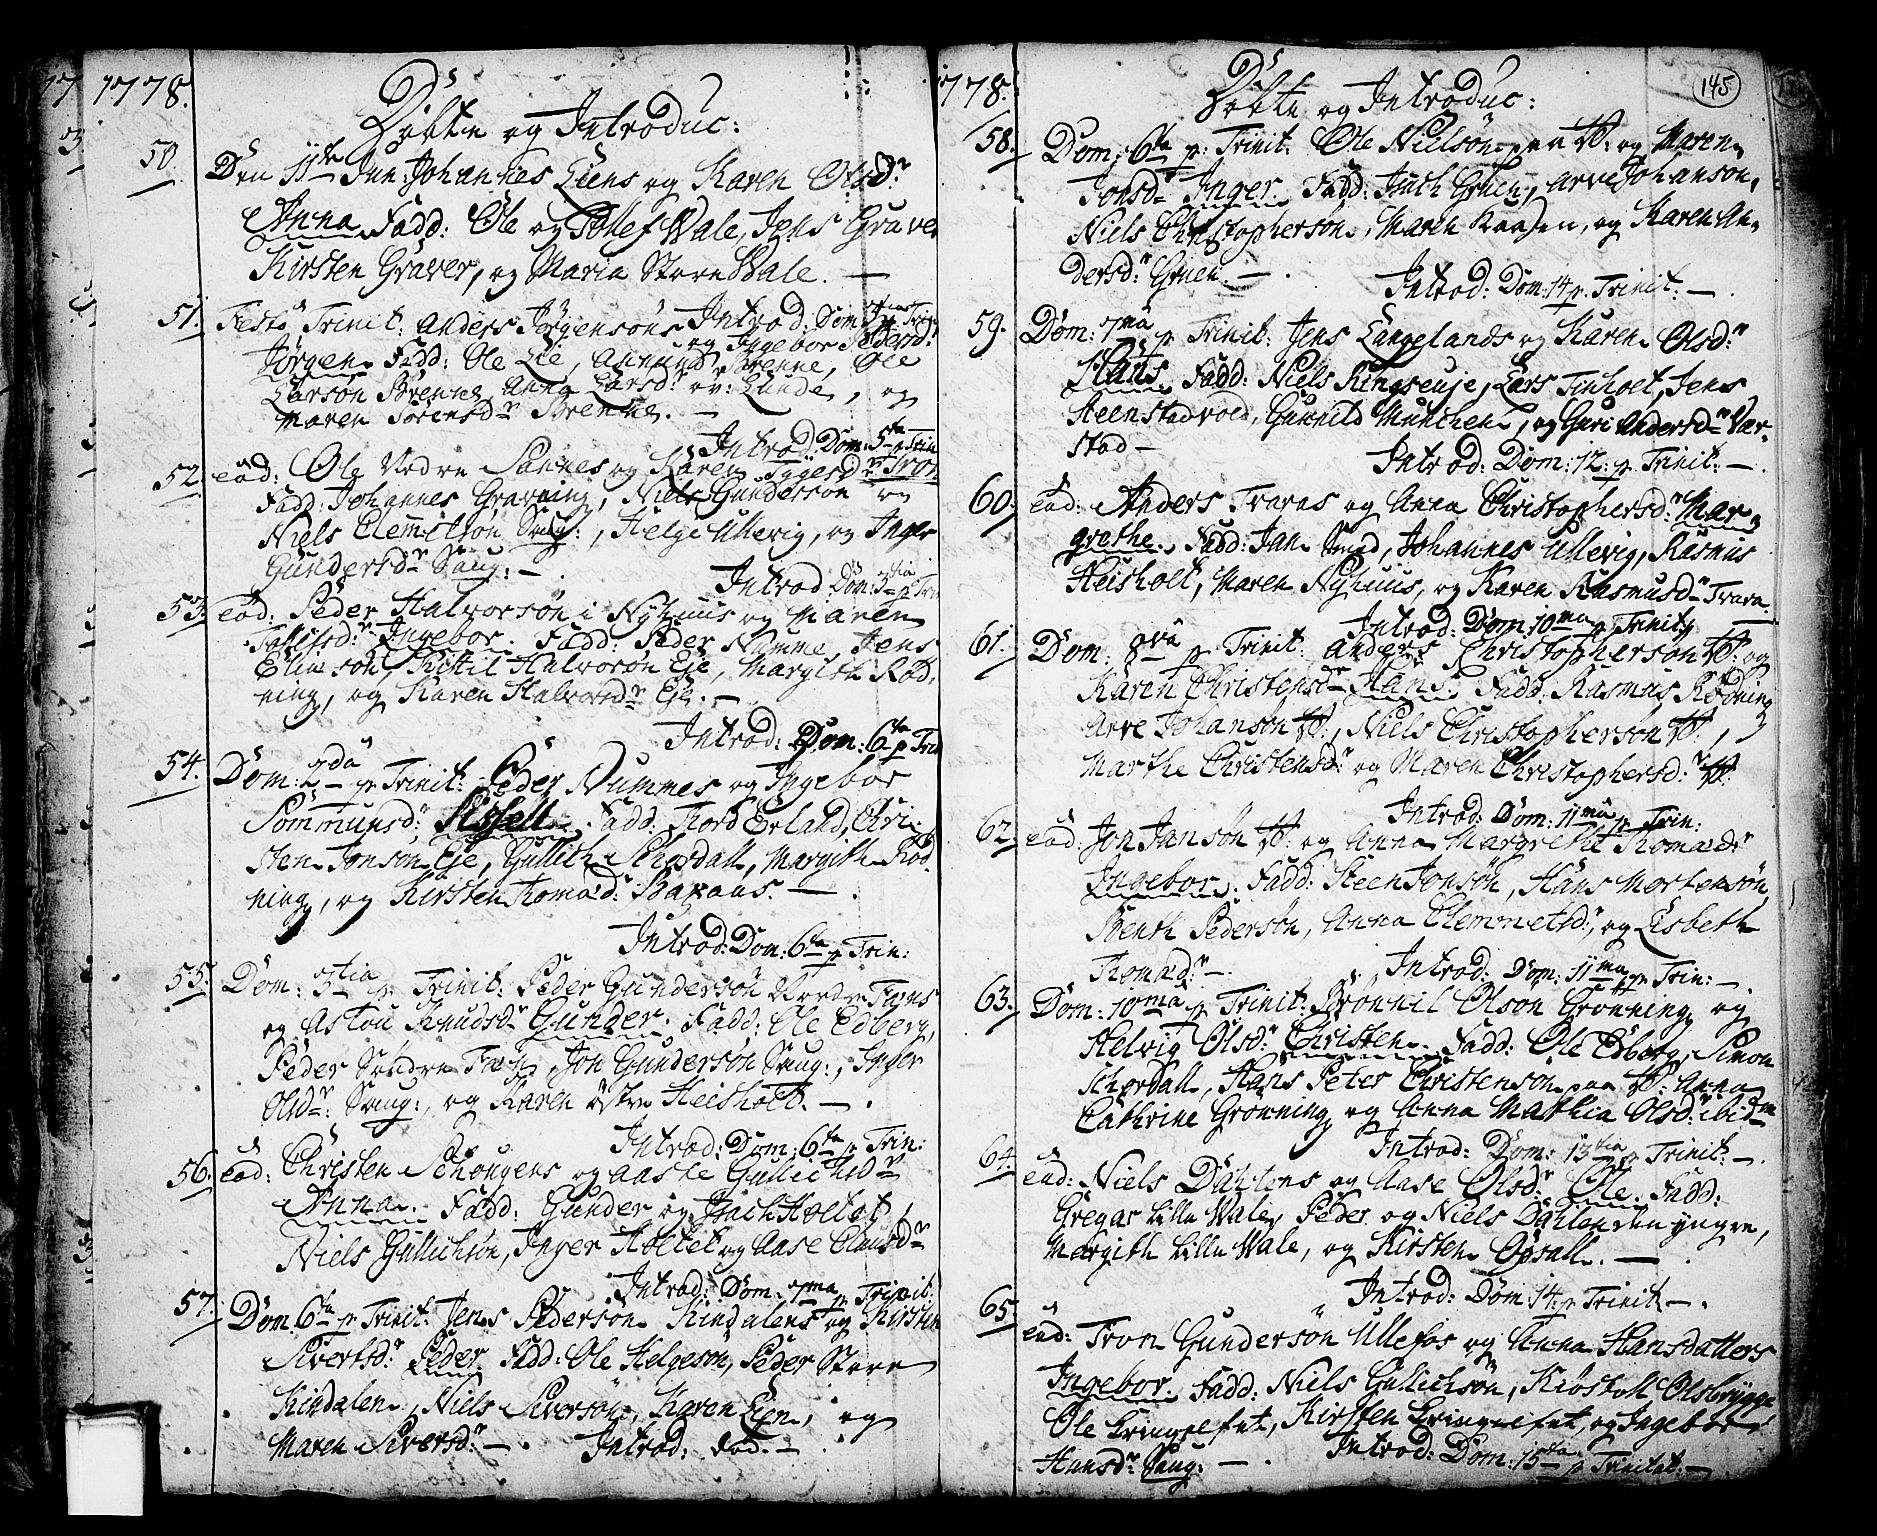 1778.
Döbte og Introduc:
50. Den 11te Jun: Johannes Liens og Karen Olsdr
Anna Fadd: Ole og Tollef Wale, Jens Graver
Kirsten Graver, og Maria Store Wale. —
Introd: Dom: p Trin:
51. Festo Trinit: Anders Jörgensöns og Ingebor Pedersdr
Jörgen. Fadd: Ole Lie, Amund Brenne, Ole
Larson Brenne, Anna Larsdr ov: Lunde, og
Maren Sörensdr Brenne. —
Introd: Dom: 5ta p Trin
52. eod: Ole Nedre Sannes og Karen Tygesdr Tron
Fadd: Johannes Gravning, Niels Gunderson og
Niels Clemetson Saug:, Helge Ullevig, og Inger
Gundersdr Saug: —
Introd Dom: 3tia p Trin
53. eod: Peder Halvorsön i Nyhuus og Maren
Tollefsdr Ingebor. Fadd: Peder Namme, Jens
Eliaeson, Kittil Halvorsön Eje, Margith Röd,
ning, og Karen Halvorsdr Eje. —
Introd: Dom: 6ta p Trin
54. Dom: 2da p Trinit: Peder Nummes og Ingebor
Sommunsdr, Sissell. Fadd: Tord Erland, Chri-
sten Jonson Eje, Gullich Skordall, Margith Röd
ning, og Kirsten Thomædr Bakaas. —
Introd: Dom: 6ta p Trin:
55. Dom: 3tia p Trinit: Peder Gundersön Nordre Fæns
og Astou Knudsdr Gunder. Fadd: Ole Edberg,
Peder Söndre Fæn, Jon Gundersön Saug:, Inger
Olsdr: Saug:, og Karen östre Heisholt. —.
Introd: Dom: 6ta p Trin:
56. eod: Christen Schougens og Aaste Gullichsdr
Anna. Fadd: Gunder og Isach Holtet,
Niels Gullichsön, Inger Holtet og Aase Clausdr
Introd: Dom: 7ma p Trinit:
57. Dom: 6ta p Trinit: Jens Pedersön Kindalens og Kirsten
Sivertsdr Peder Fadd: Ole Helgeson, Peder Store
Kindalen, Niels Siversön, Karen Lien, og
Maren Siversdr —. Introd: eod. —
1778.
145
Döbte og Introduc:
58. Dom: 6ta p: Trinit: Ole Nielsön paa W: og Maren
Jonsdr Inger. Fadd: Isach Gruen, Arve Johanson,
Niels Christopherson, Maren Kaasen, og Karen An,
dersdr Gruen. —.
Introd: Dom: 14 p Trinit: —.
59. Dom: 7ma p Trinit: Jens Langelands og Karen Olsdr
Hans. Fadd: Niels Ringseuje, Lars Tinholt, Jens
Steenstadvold, Gunnild Munchens, og Guri Andersdr Vær-
stad —
Introd: Dom: 12: p Trinit: —.
60. eod: Anders Traras og Anna Christophersdr Mar,
grethe. Fadd: Jan Smed, Johannes Ullevig, Rasmus
Heisholt, Maren Nyhuus, og Karen Rasmusdr Trara.
Introd: Dom: 10ma p Trinit
61. Dom: 8va p Trinit: Anders Christopherson W: og
Karen Christensdr Hans. Fadd: Rasmus Rödning
Arve Johanson W:, Niels Christopherson W:,
Marthe Christensdr og Maren Christophersd: W:
Introd: Dom: 11ma p Trin:
62. eod: Jon Jansön W: og Anna Margrethe Thomædr
Ingebor. Fadd: Steen Jonsön, Hans Mortensön
Benth Pedersön, Anna Clemmetsdr, og Lisbeth
Thomædr —.
Introd: Dom: 11ma p Trin: —.
63. Dom: 10ma p Trinit: Brönnil Olson Gronning og
Helvig Olsdr Christen. Fadd: Ole Edberg, Simon
Schordall, Hans Peter Christenson paa W: Anna
Cathrine Gronning og Anna Mathia Olsdr ibidm
Introd: Dom: 13tia p Trinit: —.
64. eod: Niels Dahlens og Aase Olsdr Ole. Fadd:
Gregar Lille Wale, Peder og Niels Dahlen den yngre,
Margith Lille Wale, og Kirsten Opsall. —.
Introd: Dom 14. p Trinit —.
65. eod: Tron Gundersön Ullefos og Anna Hansdatters
Ingebor. Fadd: Niels Gullichsön, Kiöstoll Olsbrygge
Ole Kringelfut, Kirsten Kringelfut, og Ingebor
Hansdr Saug: —.
Introd: Dom: 15ta p Trinitat: —